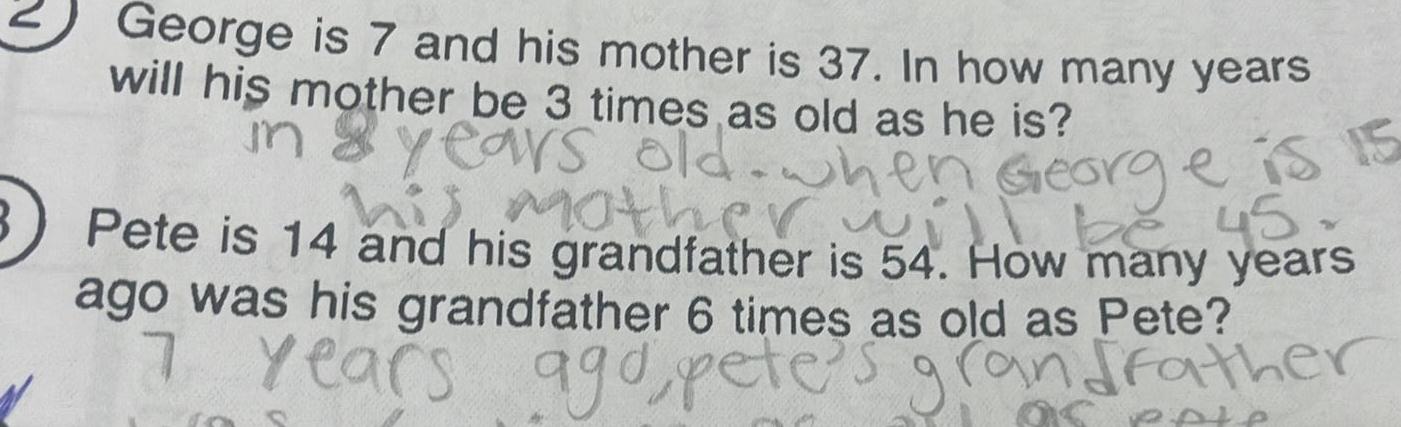 2 George is 7 and his mother is 37. In how many years
will his mother be 3 times as old as he is?
in 8 years old. when George is 15
his mother will be 45.
3 Pete is 14 and his grandfather is 54. How many years
ago was his grandfather 6 times as old as Pete?
7 years ago, pete's grandfather
as